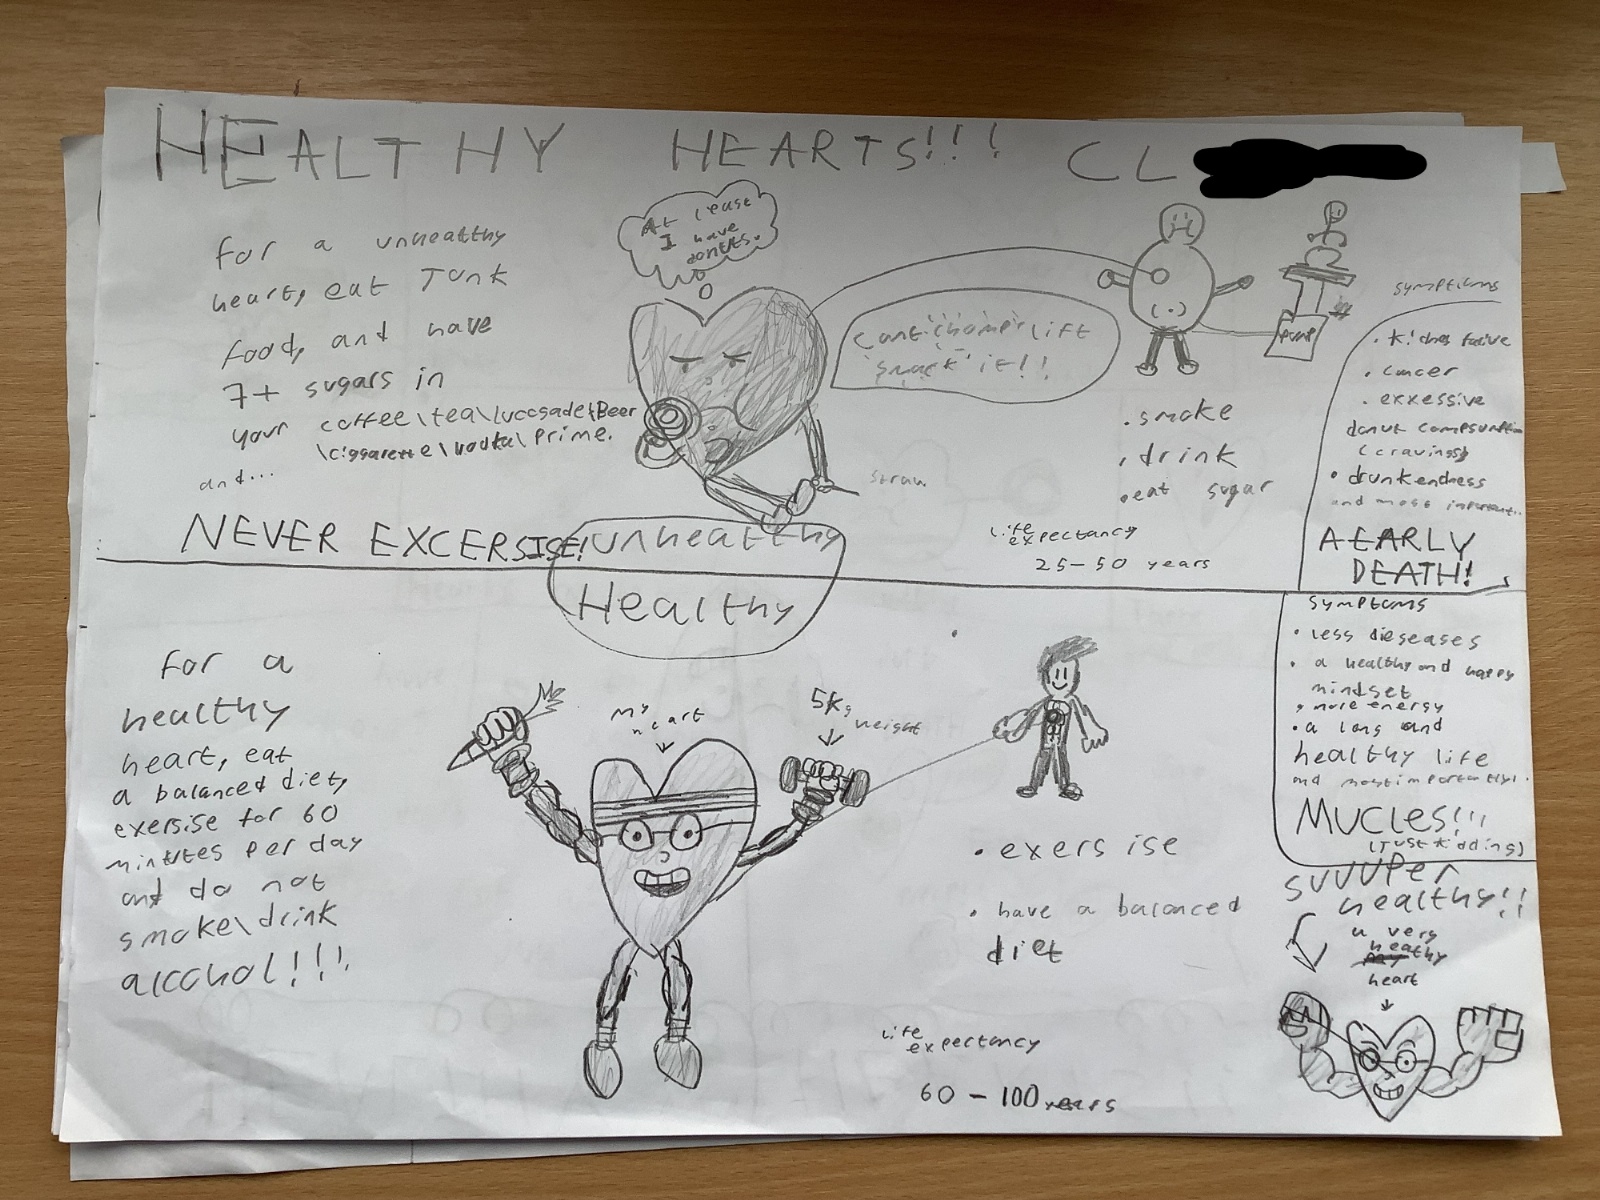 HEALTHY HEARTS!!! CL
for a unhealthy
heart, eat Junk
food, and have
7+ sugars in
your coffee\tea\luccsade\Beer
\ciggarette\vodka\Prime.
and...
NEVER EXCERSISE!
At lease
I have
donuts.
cant 'chomp' lift
'smack' it!!
straw
pump
.smoke
.drink
.eat sugar
life
expectancy
25-50 years
symptioms
.cancer
.exxessive
donut
(cravings)
• drunkendness
and most important..
A EARLY
DEATH!
unhealthy
Healthy
for a
healthy
heart, eat
a balanced diet,
exersise for 60
mintutes per day
and do not
smoke\drink
alcohol!!!
my
heart
5kg
weight
• exersise
• have a balanced
diet
life
expectancy
60 - 100 years
symptoms
• less dieseases
• a healthy and happy
mindset
• more energy
• a long and
healthy life
and most importantly!.
MUCLES!!!
(Just kidding)
SUUUPer
healthy!!
a very
heathy
heart